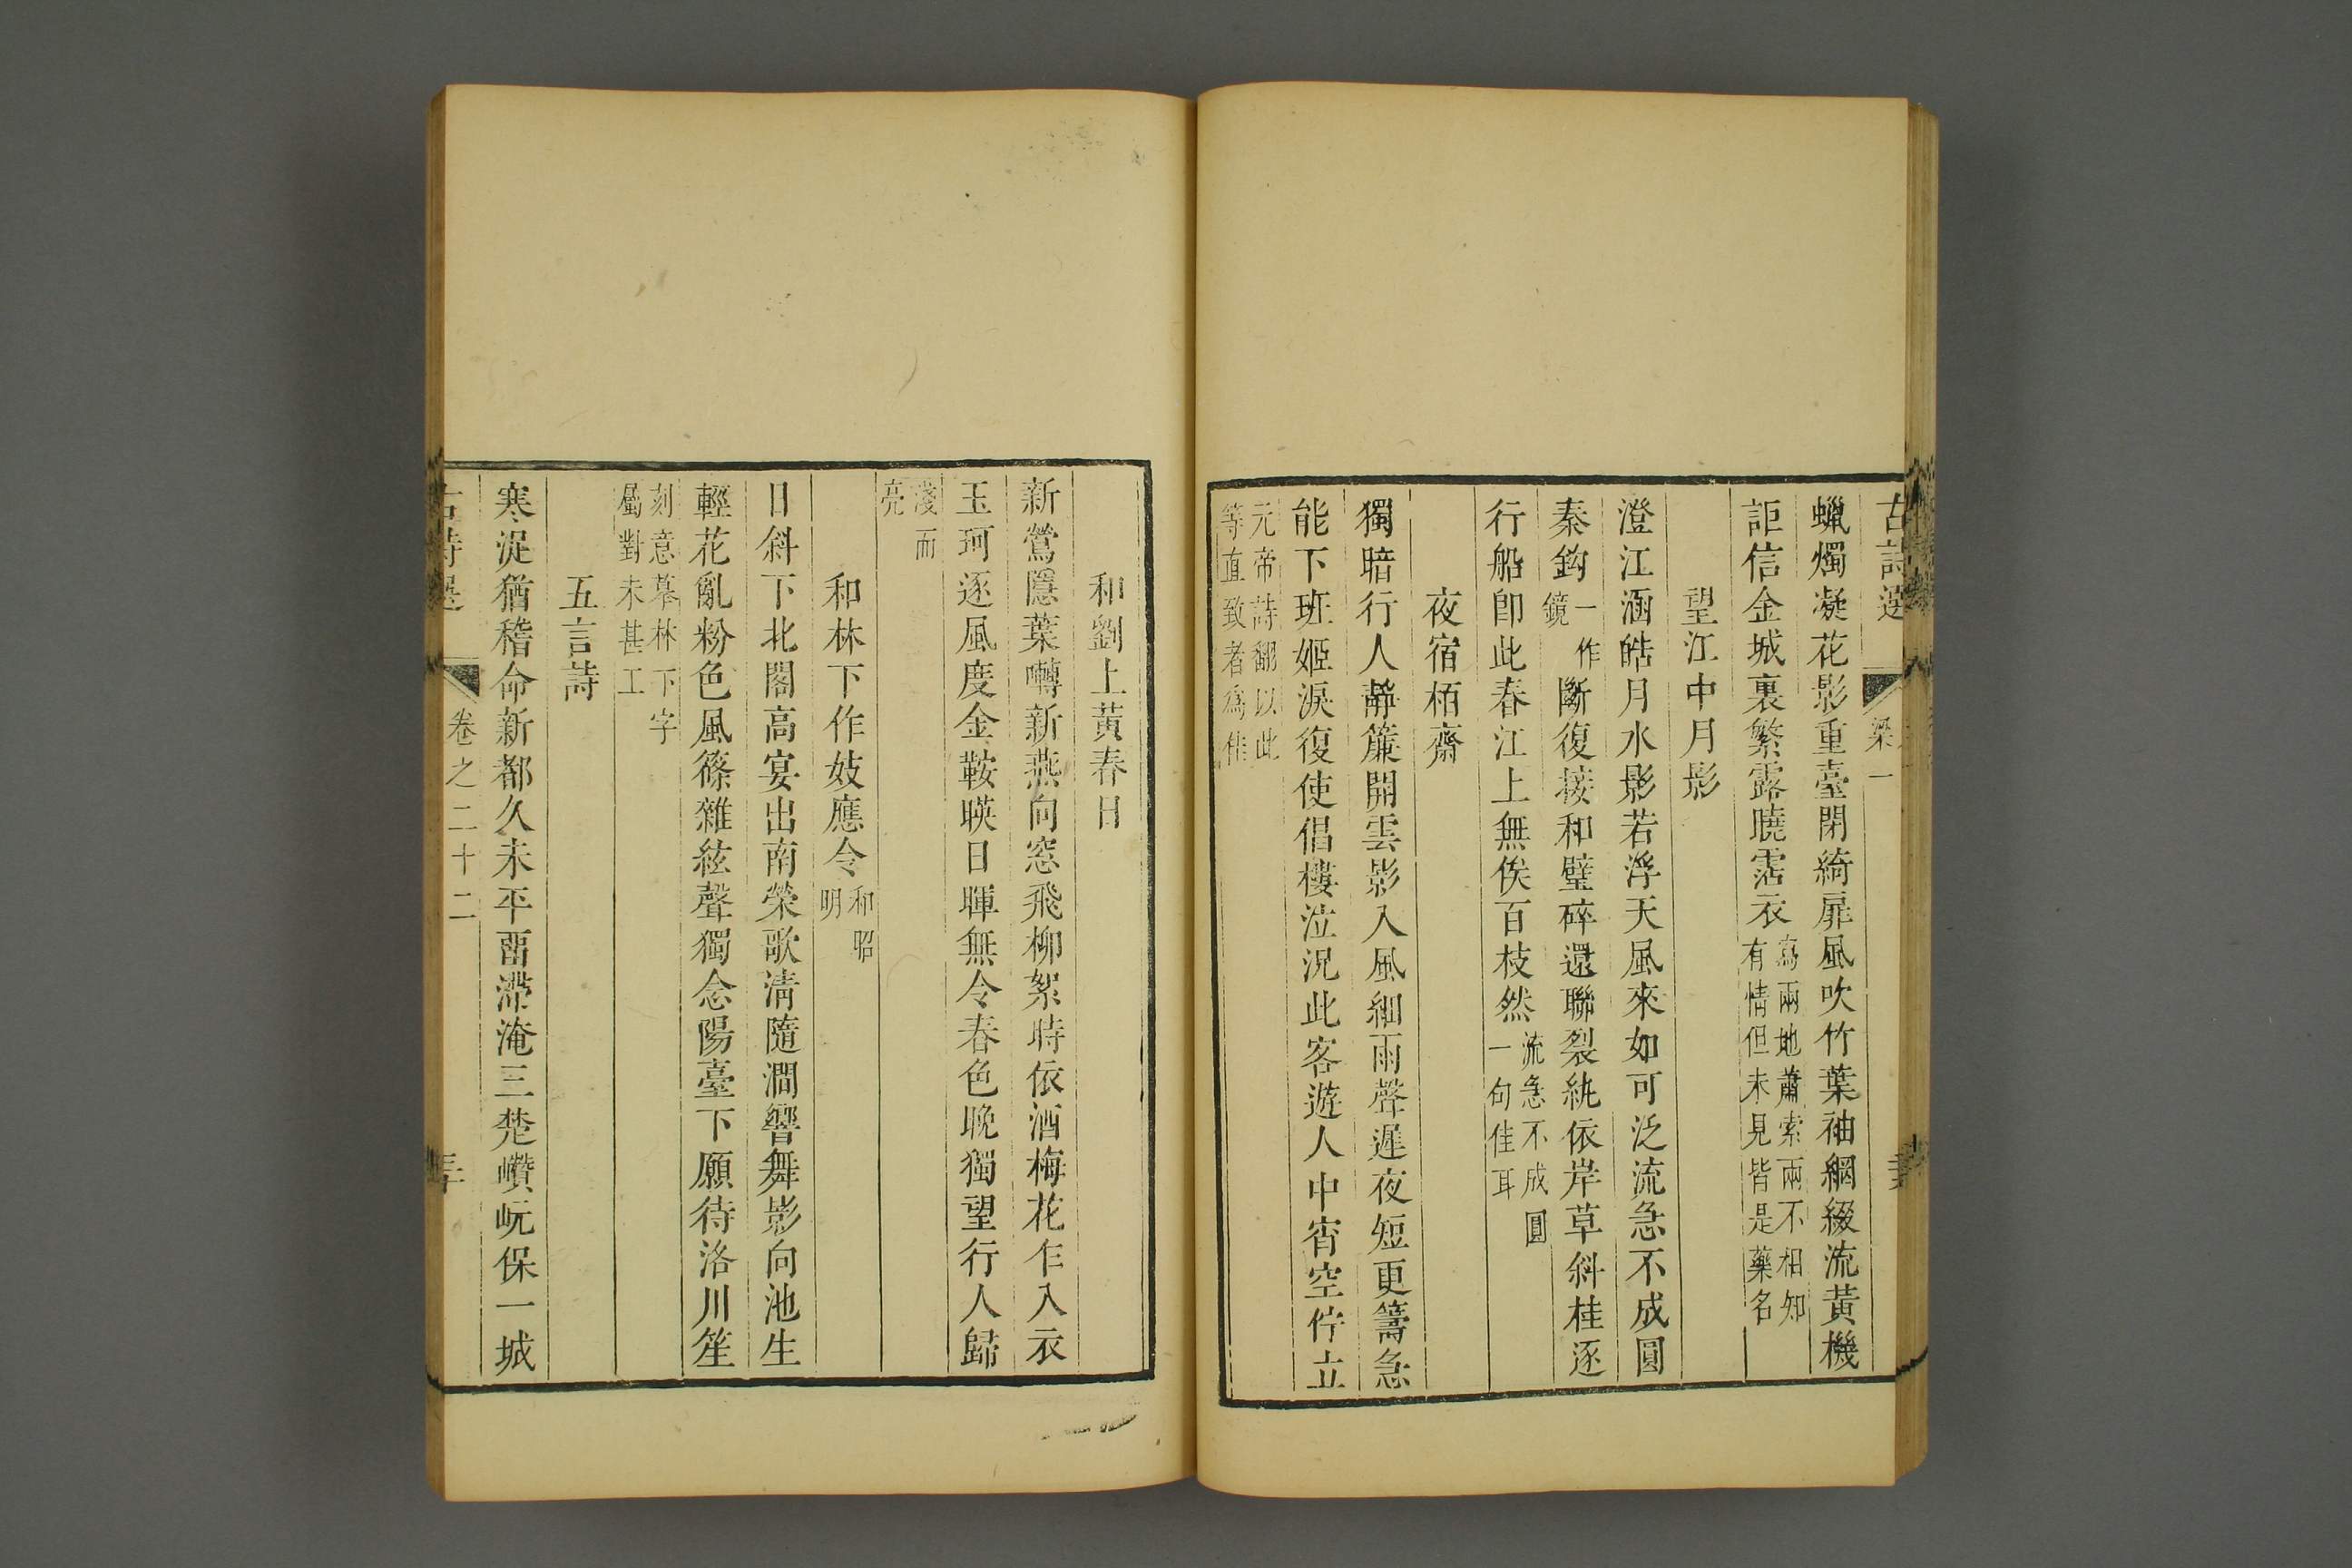 古詩選
梁一
蠟燭凝花影重臺閉綺扉風吹竹葉袖網綴流黃機
詎信金城裏繁露曉霑衣
寫兩地蕭索兩不相知
有情但未見皆是藥名
望江中月影
澄江涵皓月水影若浮天風來如可泛流急不成圓
秦鈎一作鏡斷復接和璧碎還聯裂紈依岸草斜桂逐
行船卽此春江上無俟百枝然
流急不成圓
一句佳耳
夜宿栢齋
獨暗行人靜簾開雲影入風細雨聲遲夜短更籌急
能下班姬淚復使倡樓泣況此客遊人中宵空佇立
元帝詩翻以此
等直致者爲佳
和劉上黃春日
新鶯隱葉囀新燕向窓飛柳絮時依酒梅花乍入衣
玉珂逐風度金鞍暎日暉無令春色晚獨望行人歸
淺而
亮
和林下作妓應令和昭明
日斜下北閣高宴出南榮歌淸隨澗響舞影向池生
輕花亂粉色風篠雜絃聲獨念陽臺下願待洛川笙
刻意摹林下字
屬對未甚工
五言詩
寒浞猶稽命新都久未平畱滯淹三楚巑岏保一城
古詩選
卷之二十二